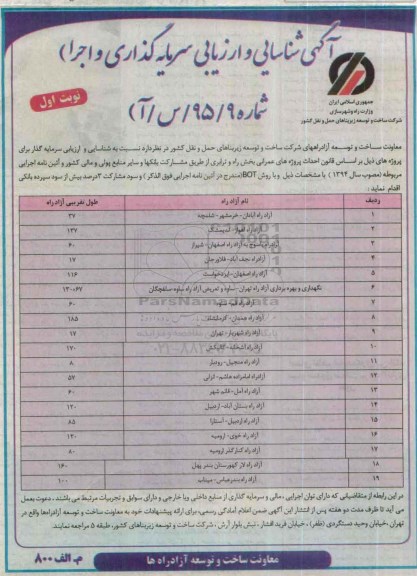 آگهی شناسایی و ارزیابی سرمایه گذاری و اجرا)
شماره ۹۵/۹/س/آ)
نوبت اول
جمهوری اسلامی ایران
وزارت راه و شهرسازی
شرکت ساخت و توسعه زیربناهای حمل و نقل کشور
معاونت ساخت و توسعه آزادراههای شرکت ساخت و توسعه زیربناهای حمل و نقل کشور در نظر دارد نسبت به شناسایی و ارزیابی سرمایه گذار برای
پروژه های ذیل بر اساس قانون احداث پروژه های عمرانی بخش راه و ترابری از طریق مشارکت بانکها و سایر منابع پولی و مالی کشور و آئین نامه اجرایی
مربوطه (مصوب سال ۱۳۹۴) با مشخصات ذیل و با روش BOT(مندرج در آئین نامه اجرایی فوق الذکر) و سود مشارکت ۳درصد بیش از سود سپرده بانکی
اقدام نماید:
ردیف نام آزاد راه طول تقریبی آزادراه
۱ آزاد راه آبادان- خرمشهر- شلمچه ۳۷
۲ آزاد راه اهواز- ۱۳۷
۳ آزاد راه اصفهان- شیراز ۶۰
۴ آزادراه نجف آباد- فلاورجان ۱۷
۵ آزادراه اصفهان- ایزدخواست ۱۱۶
۶ نگهداری و بهره برداری آزاد راه تهران- ساوه و تعریض آزاد راه ساوه سلفچگان ۱۳۰+۶۷
۷ ۶۰
۸ آزاد راه ۱۸۵
۹ آزاد راه شهریار- تهران ۱۷
۱۰ آزاد راه ۱۷۰
۱۱ آزاد راه منجیل- رودبار ۸
۱۲ آزادراه امامزاده هاشم- انزلی ۵۴
۱۳ آزاد راه آمل- قائم شهر ۶۰
۱۴ آزاد راه بستان آباد- اردبیل ۱۲۰
۱۵ آزاد راه اردبیل- آستارا ۸۵
۱۶ آزاد راه خوی- ارومیه ۱۴۰
۱۷ آزاد راه کنارگذر ارومیه ۸۰
۱۸ آزاد راه لار کهورستان بندر پهل ۱۶۰
۱۹ آزاد راه بندرعباس- میناب ۱۰۰
در این رابطه از متقاضیانی که دارای توان اجرایی ،مالی و سرمایه گذاری از منابع داخلی ویا خارجی و دارای سوابق و تجربیات مرتبط می باشند ، دعوت بعمل
می آید تا ظرف مدت دو هفته پس از انتشار این آگهی ضمن اعلام آمادگی رسمی، برای ارائه پیشنهادات خود به معاونت ساخت و توسعه آزادراهها واقع در
تهران ،خیابان وحید دستگردی (ظفر) ، خیابان فرید افشار ، نبش بلوار آرش ، شرکت ساخت و توسعه زیربناهای کشور، طبقه ۵ مراجعه نمایند.
معاونت ساخت و توسعه آزادراه ها
م. الف ۸۰۰